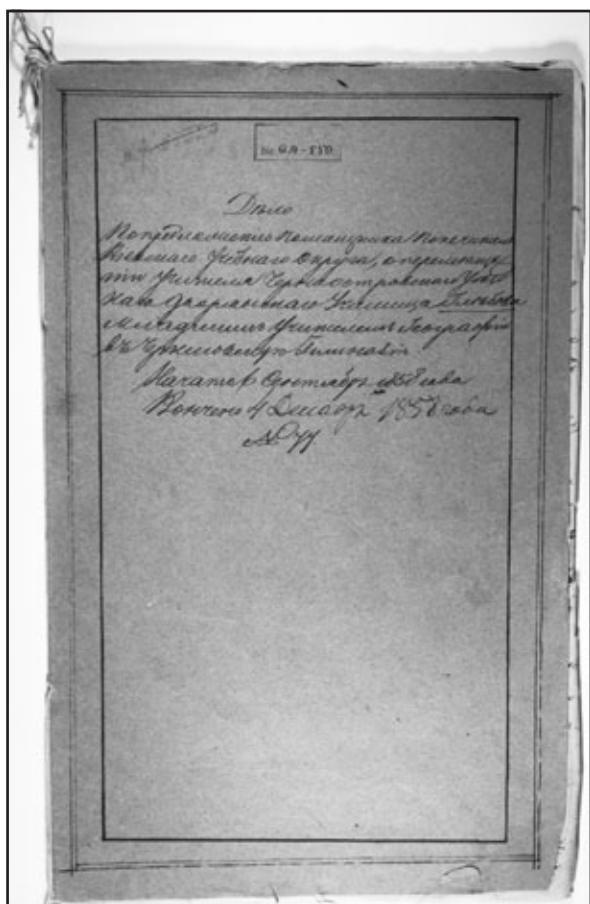 № ГЛ-850
Дѣло
По предложенію Помощника Попечителя
Кіевскаго Учебнаго Округа, о перемеще
нии Учителя Чернаостровскаго Уѣзд
наго дворянскаго Училища Глѣбова
младшимъ Учителемъ Географіи
въ Черниговскую Гимназію
Начато Сентября 1858 года
Кончено 4 Декабря 1858 года
№ 77